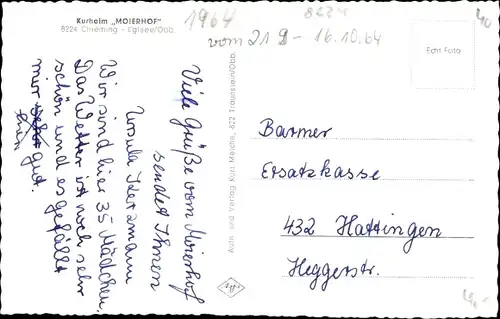 Kurheim „MOIERHOF"
8224 Chieming - Eglsee/Obb.
1964
8224
vom 21.9 - 16.10.64
Echt Foto
Viele Grüße vom Moierhof
sendet Ihnen
Ursula
Wir sind hier 35 Mädchen.
Das Wetter ist noch sehr
schön und es gefällt
mir sehr gut.
hier
Aufn. und Verlag Kurt Meiche, 822 Traunstein/Obb.
Barmer
Ersatzkasse
432 Hattingen
Heggerstr.